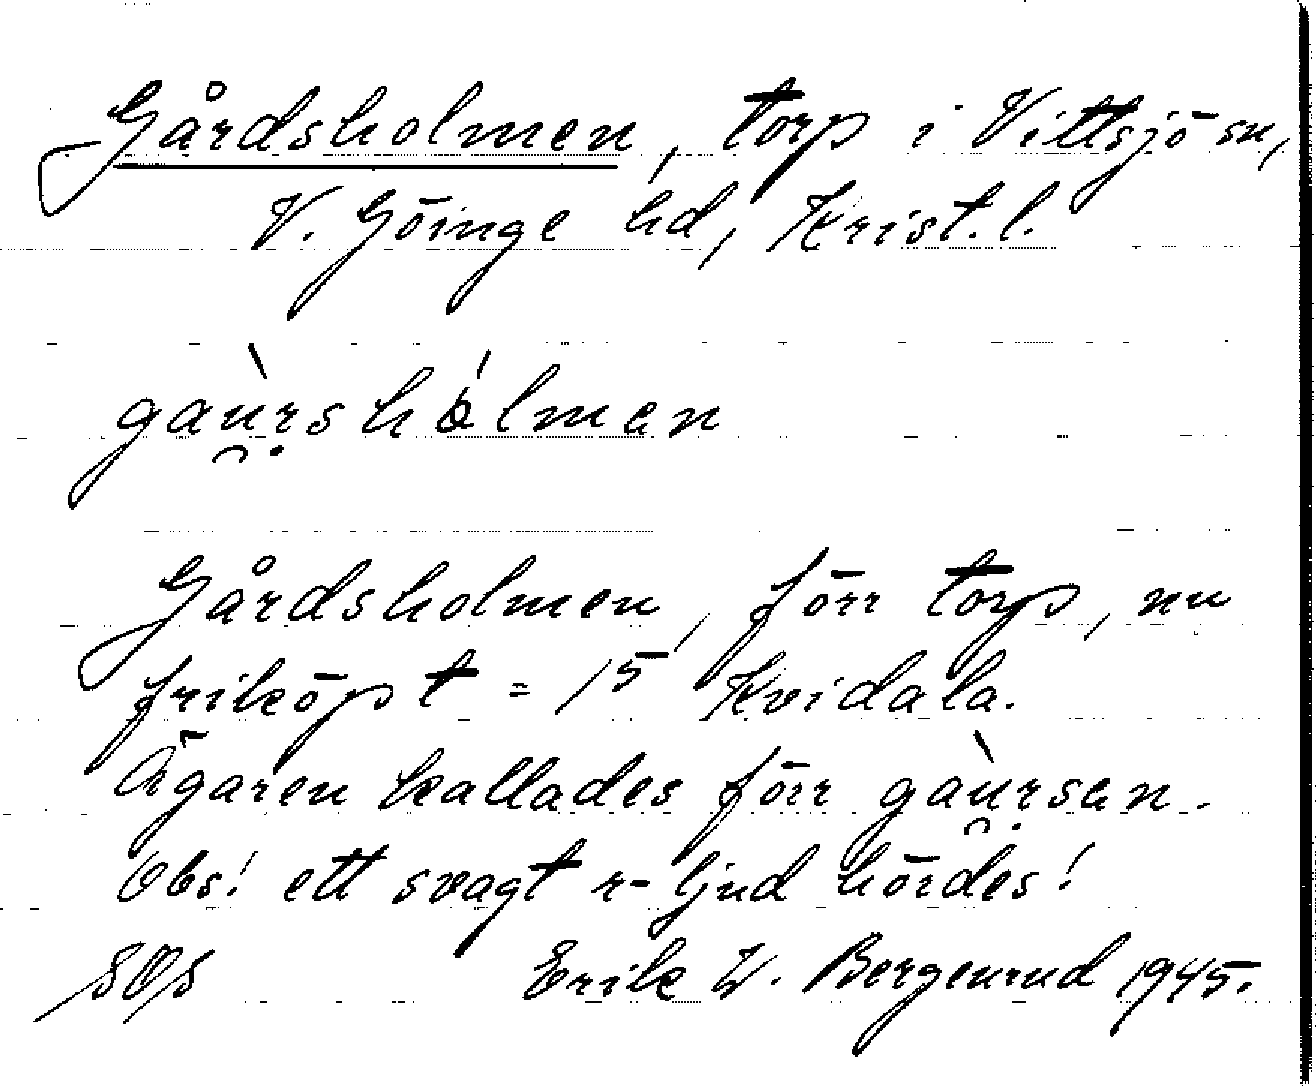 Gårdsholmen, torp i Vittsjö sn,
V. Göinge hd, Krist. l.
gaù̯rṣhólmen
Gårdsholmen, förr torp, nu
friköpt = 15 Kvidala.
Ägaren kallades förr gaù̯rṣen.
Obs! ett svagt r-ljud hördes!
SOS Erik W. Bergenrud 1945.